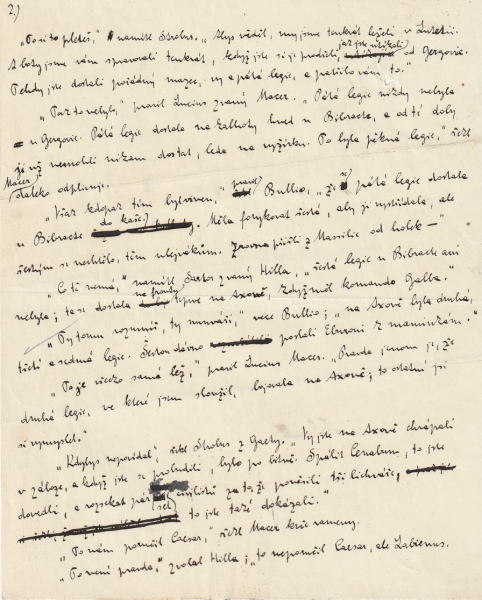 2.)
"To si to pleteš," namítl Strobus. "Abys věděl, my jsme tenkrát leželi v Lutetii.
A boty jsme vám spravovali tenkrát, když jste si je prošlapali, jak jste utíkali od Gergovie.
Tehdy jste dostali pořádný mazec, vy a pátá legie, a patřilo vám to."
"Tak to nebylo," pravil Lucius zvaný Macer. "Pátá legie nikdy nebyla
u Gergovie. Pátá legie dostala na kalhoty hned u Bibracte, a od té doby
ji už nemohli nikam dostat, leda na vyžírku. To byla pěkná legie," řekl
Macer a daleko odplivnul.
"Však kdopak tím byl vinen," pravil Bullio, "že se pátá legie dostala
u Bibracte do kaše. Měla postupovat šestá, aby ji vystřídala, ale
šestým se nechtělo, těm ulejvákům. Zrovna přišli z Massilie od holek –"
"Co tě nemá," namítl Sartor zvaný Hilla, "šestá legie u Bibracte ani
nebyla; ta se dostala na frontu teprve na Axoně, když měl komando Galba."
"Ty tomu rozumíš, ty munváři," řekl Bullio; "na Axoně byla druhá,
třetí a sedmá legie. Šestou dávno poslali Eburoni z maminkám."
"To je všecko samá lež," pravil Lucius Macer. "Pravda jenom je, že
druhá legie, ve které jsem sloužil, bojovala na Axoně; to ostatní jsi
si vymyslel."
"Kdybys nepovídal," řekl Strobus z Gaety. "Vy jste na Axoně chrápali
v záloze, a když jste se probudili, bylo po bitvě. Spálit Cenabum, to jste
dovedli, a rozsekat pár set civilistů za to, že pověsili tři lichváře,
to jste také dokázali."
"To nám poručil Caesar," řekl Macer krče rameny.
"To není pravda," zvolal Hilla; "to neporučil Caesar, ale Labienus.